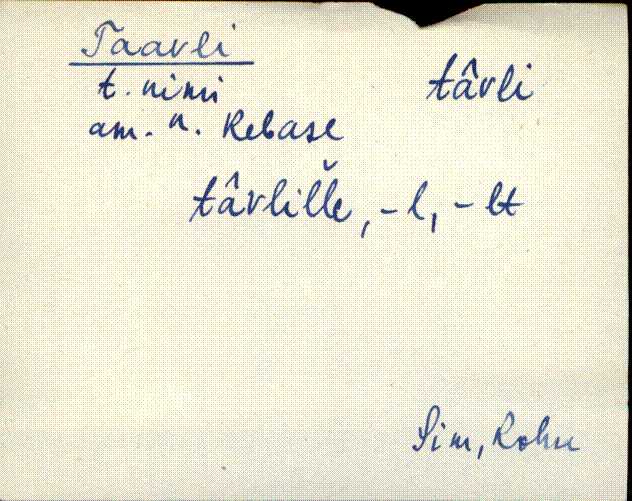 Taavli
t. nimi tâvli
am. n. Rebase
tâvlil̆l̆e, -l, -lt
Sim, Rohu